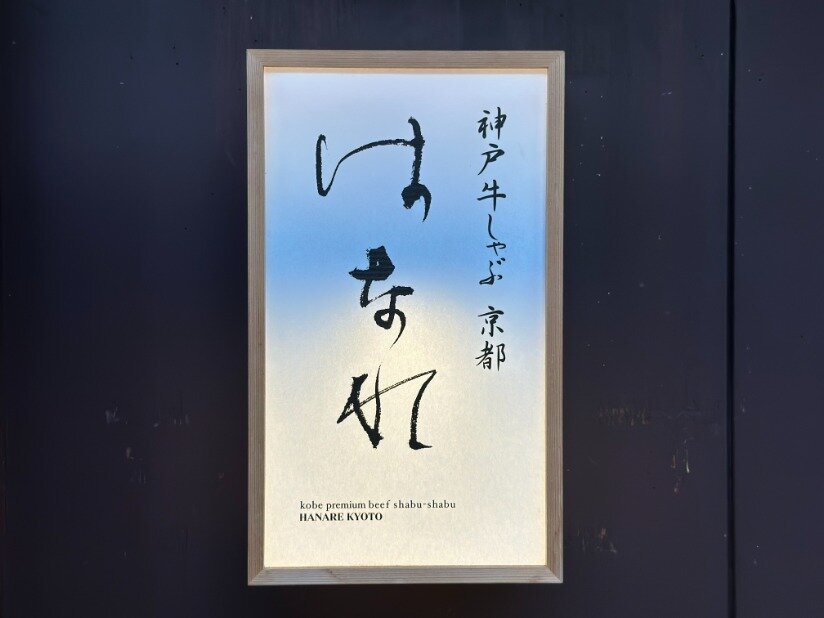 神戸牛しゃぶ 京都
はなれ
kobe premium beef shabu-shabu
HANARE KYOTO